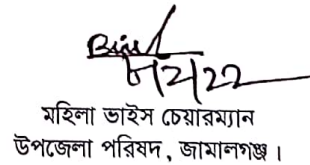 মহিলা ভাইস চেয়ারম্যান
উপজেলা পরিষদ, জামালগঞ্জ।